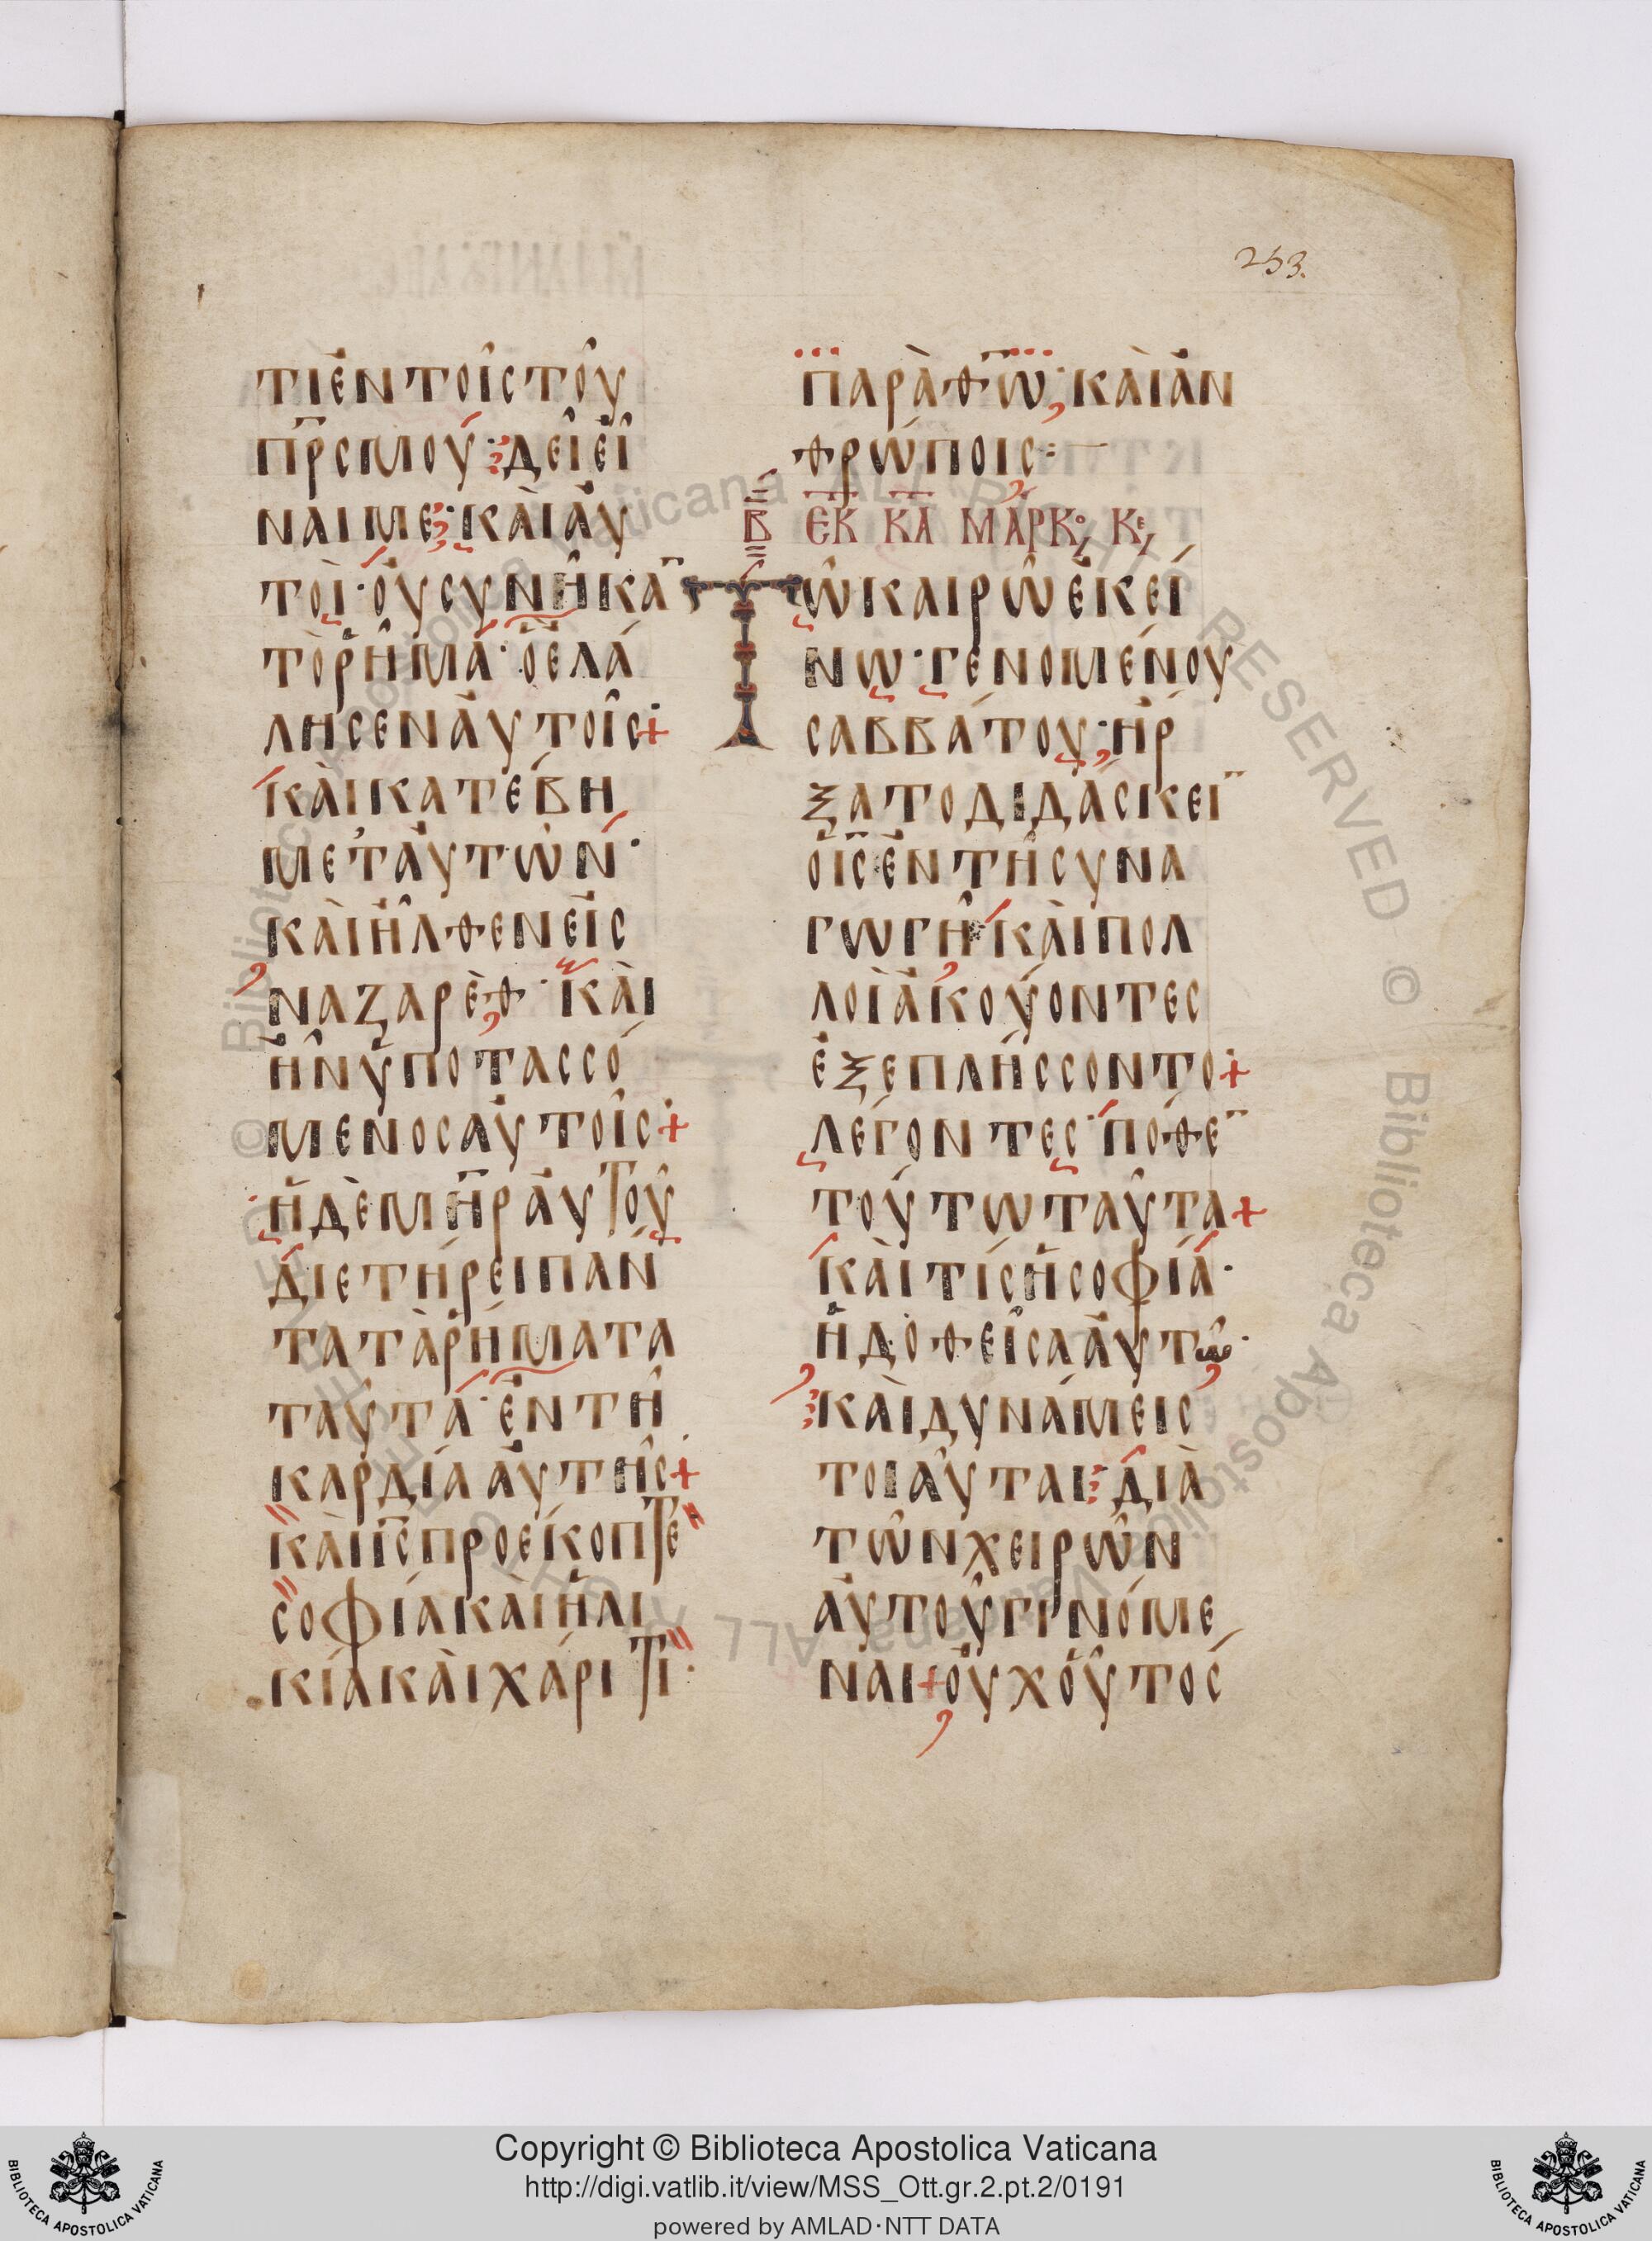 253.
ΤΙἘΝΤΟΙ͂ΣΤΟΥ͂
Π̅Ρ̅ΣΜΟΥ· ΔΕΙ͂ΕΙ͂
ΝΑΙΜΕ· ΚΑῚΑΥ̓
ΤΟῚ· ΟΥ̓ΣΥΝΗ͂ΚΑ̅
ΤῸΡΗ͂ΜΑ· ὉἘΛΆ
ΛΗΣΕΝΑΥ̓ΤΟΙ͂Σ+
ΚΑῚΚΑΤΈΒΗ
ΜΕΤ᾿ΑΥ̓ΤΩ͂Ν·
ΚΑῚΗ͂ΛΘΕΝΕἸΣ
ΝΑΖΑΡῈΘ· ΚΑῚ
Ἦ͂ΝὙΠΟΤΑΣΣΌ
ΜΕΝΟΣΑΥ̓ΤΟΙ͂Σ+
ἩΔῈΜΗ̅Ρ̅ΑΥ̓ΤΟΥ͂
ΔΙΕΤΉΡΕΙΠΆΝ
ΤΑΤᾺΡΉΜΑΤΑ
ΤΑΥ͂ΤΑ· ἘΝΤΗ͂
ΚΑΡΔΊΑΑΥ̓ΤΗ͂Σ+
ΚΑῚΙ̅Σ̅ΠΡΟΈΚΟΠΤΕ
ΣΟΦΊΑΚΑῚἩΛΙ
ΚΊΑΚΑῚΧΆΡΙΤΙ·
ΠΑΡᾺΘ̅Ω̅· ΚΑῚἈΝ
ΘΡΏΠΟΙΣ:
Β ΕΚ ΚΑ ΜΑΡΚΟ ΚΕ
ΤΩ͂ΚΑΙΡΩ͂ἘΚΕΊ
ΝΩ· ΓΕΝΟΜΈΝΟΥ
ΣΑΒΒΆΤΟΥ· ἨΡ
ΞΑΤΟΔΙΔΆΣΚΕΙ̅
ΟΙ̅Σ̅ἘΝΤΗ͂ΣΥΝΑ
ΓΩΓΗ͂· ΚΑῚΠΟΛ
ΛΟῚἈΚΟΎΟΝΤΕΣ
ἘΞΕΠΛΉΣΣΟΝΤΟ+
ΛΈΓΟΝΤΕΣ· ΠΌΘΕ̅
ΤΟΎΤΩΤΑΥ͂ΤΑ+
ΚΑῚΤΊΣἩΣΟΦΊΑ·
ἩΔΟΘΕΙ͂ΣΑΑΥ̓ΤΩ͂·
ΚΑῚΔΥΝΆΜΕΙΣ
ΤΟΙΑΥ͂ΤΑΙ· ΔΙᾺ
ΤΩ͂ΝΧΕΙΡΩ͂Ν
ΑΥ̓ΤΟΥ͂ΓΙΝΌΜΕ
ΝΑΙ+ΟΥ̓ΧΟΥ͂ΤΌΣ
Copyright © Biblioteca Apostolica Vaticana
http://digi.vatlib.it/view/MSS_Ott.gr.2.pt.2/0191
powered by AMLAD·NTT DATA
BIBLIOTECA APOSTOLICA VATICANA
BIBLIOTECA APOSTOLICA VATICANA